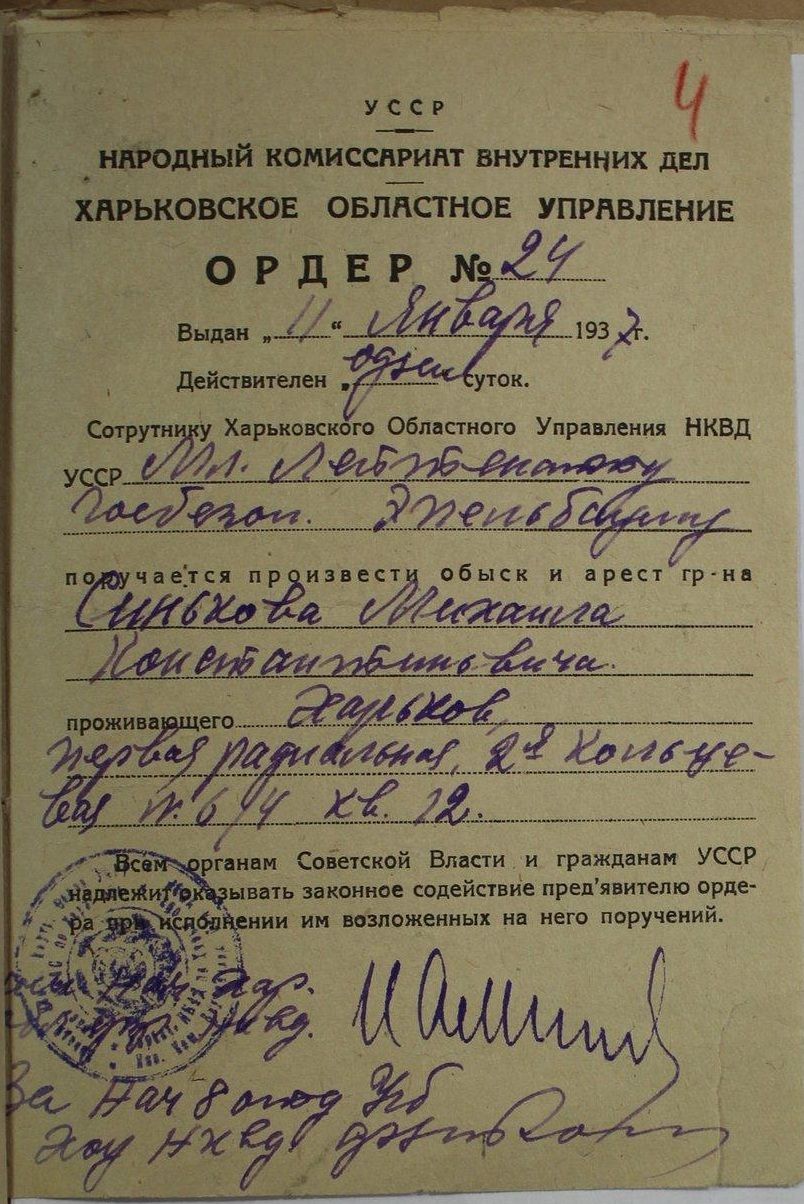 4
УССР
НАРОДНЫЙ КОМИССАРИАТ ВНУТРЕННИХ ДЕЛ
ХАРЬКОВСКОЕ ОБЛАСТНОЕ УПРАВЛЕНИЕ
ОРДЕР № 24
Выдан „ 11 “ Января 1937 г.
Действителен „ суток.
Сотрутнику Харьковского Областного Управления НКВД
УССР Мл. Лейтенанту
Госбезоп.
поручается произвести обыск и арест гр-на
Синькова Михаила
Константиновича.
проживающего Харьков,
первая радиальная, 2я Кольце-
вая N. 6/4 кв. 12.
Всем органам Советской Власти и гражданам УССР
надлежит оказывать законное содействие пред'явителю орде-
ра при исполнении им возложенных на него поручений.
Нач Хар.
НКВД.
За Нач 8 отд УГБ
ХОУ НКВД